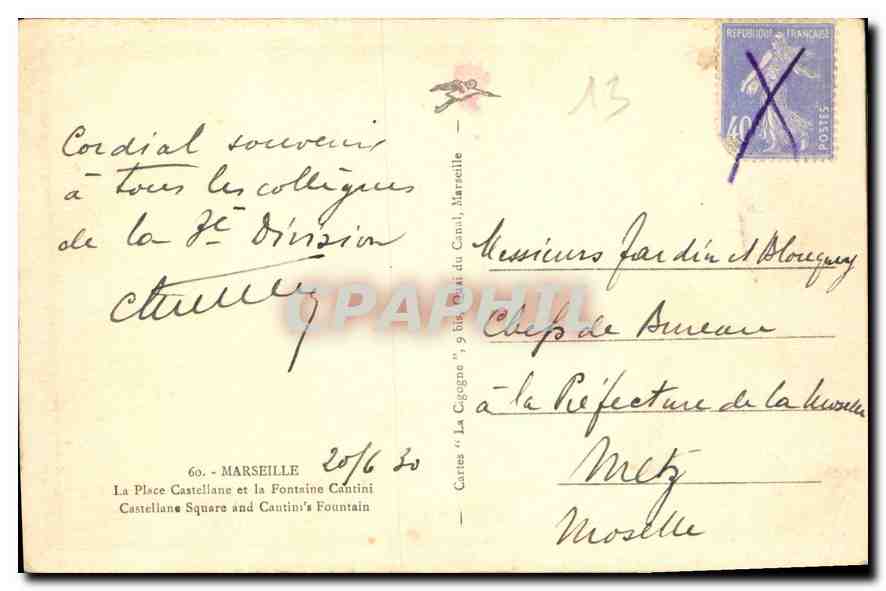 Cordial souvenir
à tous les collègues
de la 3e Division
60. - MARSEILLE 20/6 30
La Place Castellane et la Fontaine Cantini
Castellane Square and Cantini's Fountain
Cartes "La Cigogne", 9 bis, Quai du Canal, Marseille
CPAPHIL
13
RÉPUBLIQUE FRANÇAISE
40
POSTES
Messieurs Jardin et
Chefs de Bureau
à la Préfecture de la Moselle
Metz
Moselle